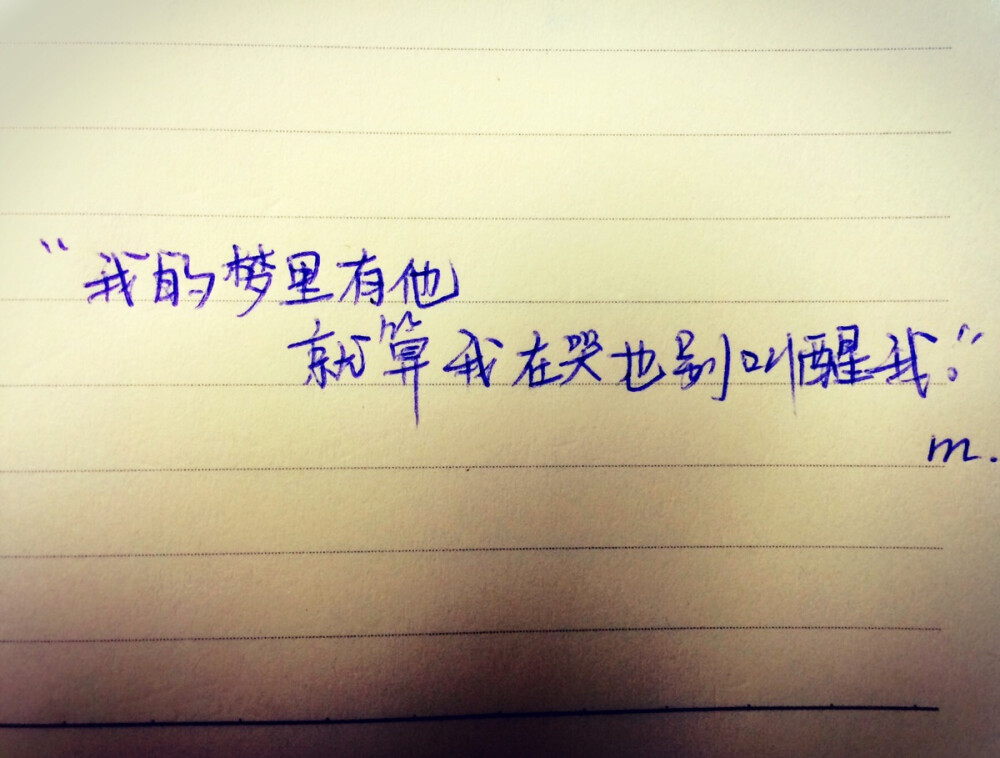 “我的梦里有他
就算我在哭也别叫醒我。”
m.